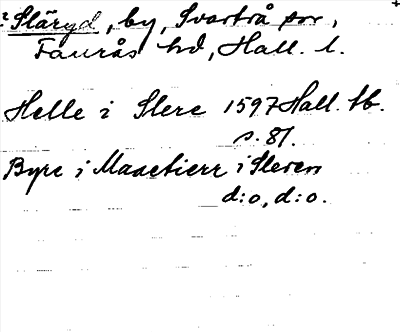 ? Släryd, by, Svartrå sn,
Faurås hd, Hall. l.
Helle i Slere 1597 Hall. tb.
s. 81.
Byre i Maaetierr i Sleren
d:o, d:o.